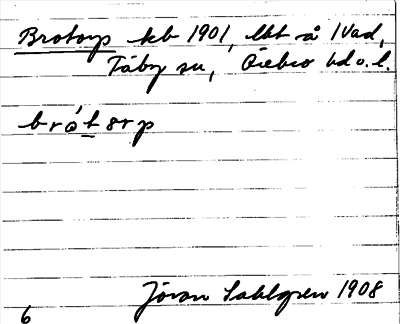 Brotorp kb 1901, lht å Vad,
Täby sn, Örebro hd o. l.
bró̱torp
Jöran Sahlgren 1908
6